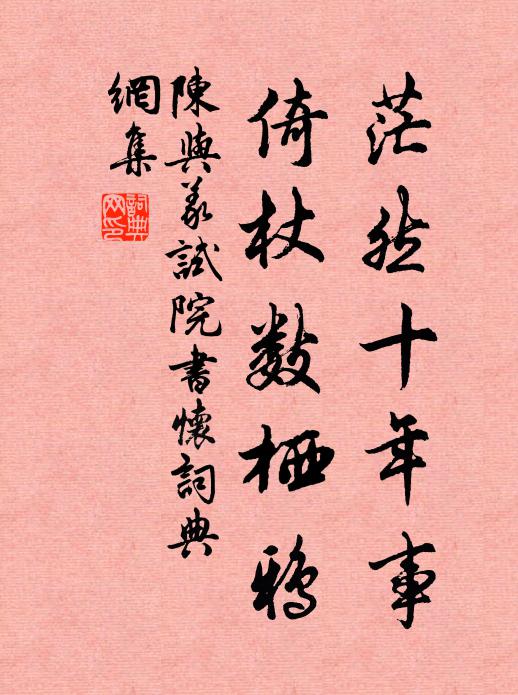 茫然十年事
倚杖数栖鸦
陳與義試院書懷詞典
網集
詞典
网印